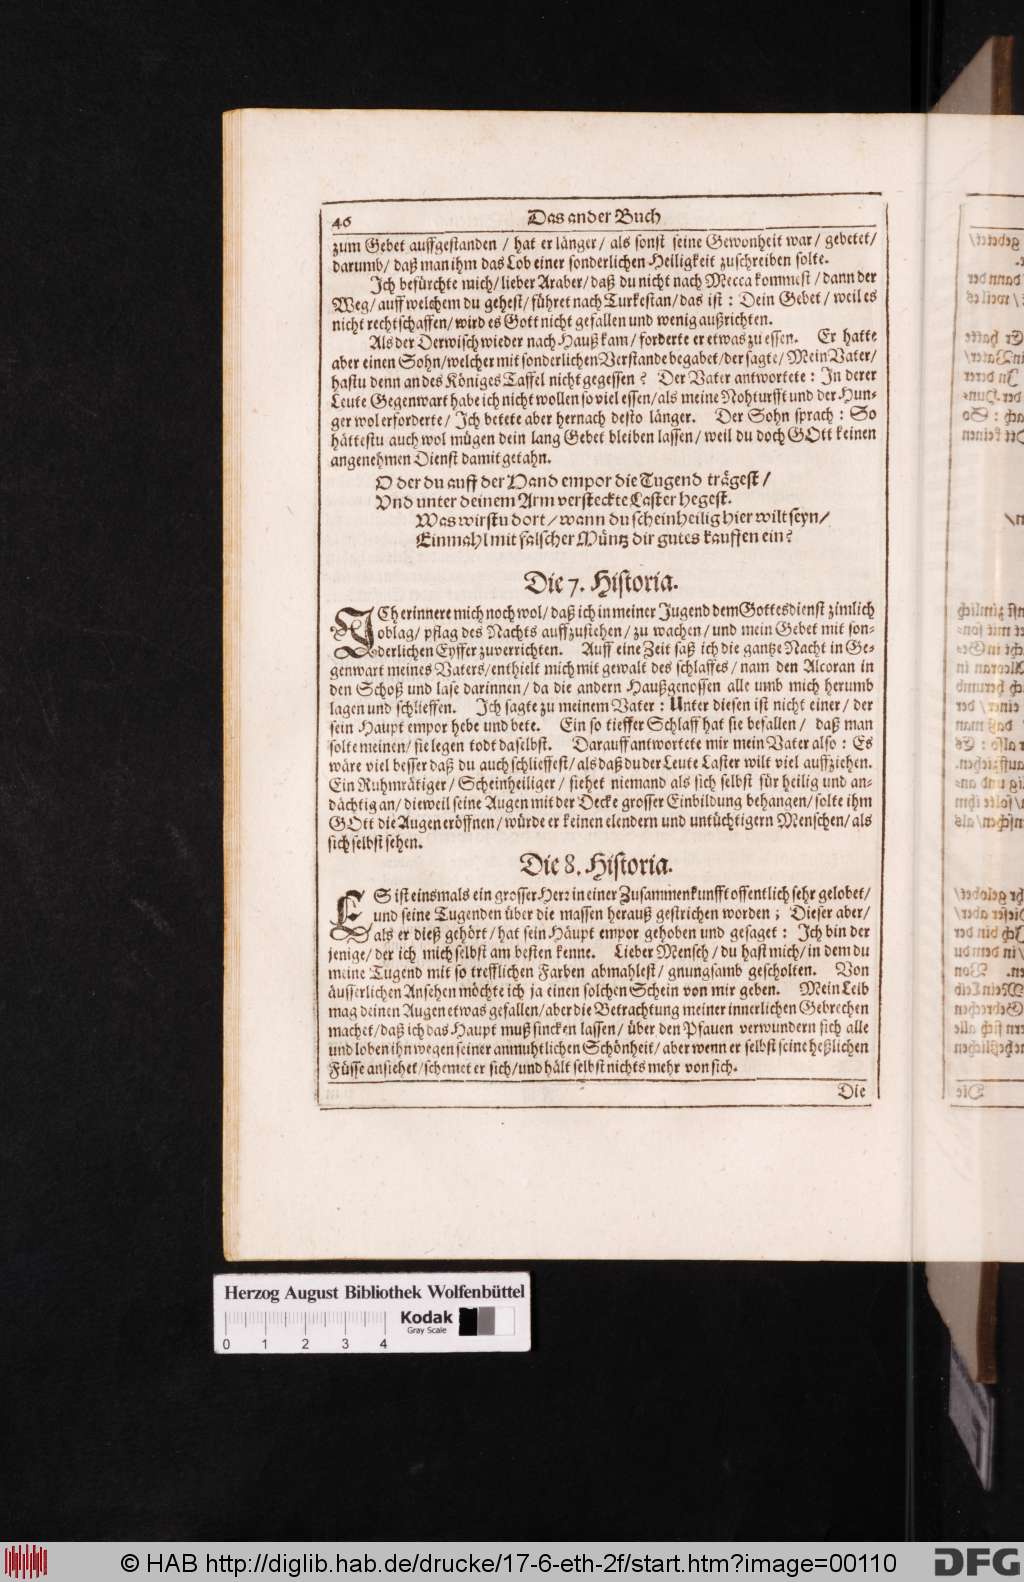 46 Das ander Buch
zum Gebet auffgestanden / hat er länger / als sonst seine Gewonheit war / gebetet /
darumb / daß man ihm das Lob einer sonderlichen Heiligkeit zuschreiben solte.
Ich befürchte mich / lieber Araber / daß du nicht nach Mecca kommest / dann der
Weg / auff welchem du gehest / führet nach Turkestan / das ist : Dein Gebet / weil es
nicht rechtschaffen / wird es Gott nicht gefallen und wenig außrichten.
Als der Derwisch wieder nach Hauß kam / forderte er etwas zu essen. Er hatte
aber einen Sohn / welcher mit sonderlichen Verstande begabet / der sagte / Mein Vater /
hastu denn an des Königes Taffel nicht gegessen ? Der Vater antwortete : In derer
Leute Gegenwart habe ich nicht wollen so viel essen / als meine Nohturfft und der Hun-
ger wol erforderte / Ich betete aber hernach desto länger. Der Sohn sprach : So
hättestu auch wol mügen dein lang Gebet bleiben lassen / weil du doch GOtt keinen
angenehmen Dienst damit getahn.
O der du auff der Hand empor die Tugend trägest /
Vnd unter deinem Arm versteckte Laster hegest.
Was wirstu dort / wann du scheinheilig hier wilt seyn /
Einmahl mit falscher Müntz dir gutes kauffen ein ?
Die 7. Historia.
ICh erinnere mich noch wol / daß ich in meiner Jugend dem Gottesdienst zimlich
oblag / pflag des Nachts auffzustehen / zu wachen / und mein Gebet mit son-
derlichen Eyffer zuverrichten. Auff eine Zeit saß ich die gantze Nacht in Ge-
genwart meines Vaters / enthielt mich mit gewalt des schlaffes / nam den Alcoran in
den Schoß und lase darinnen / da die andern Haußgenossen alle umb mich herumb
lagen und schlieffen. Ich sagte zu meinem Vater : Unter diesen ist nicht einer / der
sein Haupt empor hebe und bete. Ein so tieffer Schlaff hat sie befallen / daß man
solte meinen / sie legen todt daselbst. Darauff antwortete mir mein Vater also : Es
wäre viel besser daß du auch schlieffest / als daß du der Leute Laster wilt viel auffziehen.
Ein Ruhmrätiger / Scheinheiliger / siehet niemand als sich selbst für heilig und an-
dächtig an / dieweil seine Augen mit der Decke grosser Einbildung behangen / solte ihm
GOtt die Augen eröffnen / würde er keinen elendern und untüchtigern Menschen / als
sich selbst sehen.
Die 8. Historia.
ES ist einsmals ein grosser Herr in einer Zusammenkunfft offentlich sehr gelobet /
und seine Tugenden über die massen herauß gestrichen worden ; Dieser aber /
als er dieß gehört / hat sein Häupt empor gehoben und gesaget : Ich bin der
jenige / der ich mich selbst am besten kenne. Lieber Mensch / du hast mich / in dem du
meine Tugend mit so trefflichen Farben abmahlest / gnungsamb gescholten. Von
äusserlichen Ansehen möchte ich ja einen solchen Schein von mir geben. Mein Leib
mag deinen Augen etwas gefallen / aber die Betrachtung meiner innerlichen Gebrechen
machet / daß ich das Haupt muß sincken lassen / über den Pfauen verwundern sich alle
und loben ihn wegen seiner anmuhtlichen Schönheit / aber wenn er selbst seine heßlichen
Füsse ansiehet / schemet er sich / und hält selbst nichts mehr von sich.
Die
Herzog August Bibliothek Wolfenbüttel
Kodak
Gray Scale
0 1 2 3 4
© HAB http://diglib.hab.de/drucke/17-6-eth-2f/start.htm?image=00110
DFG